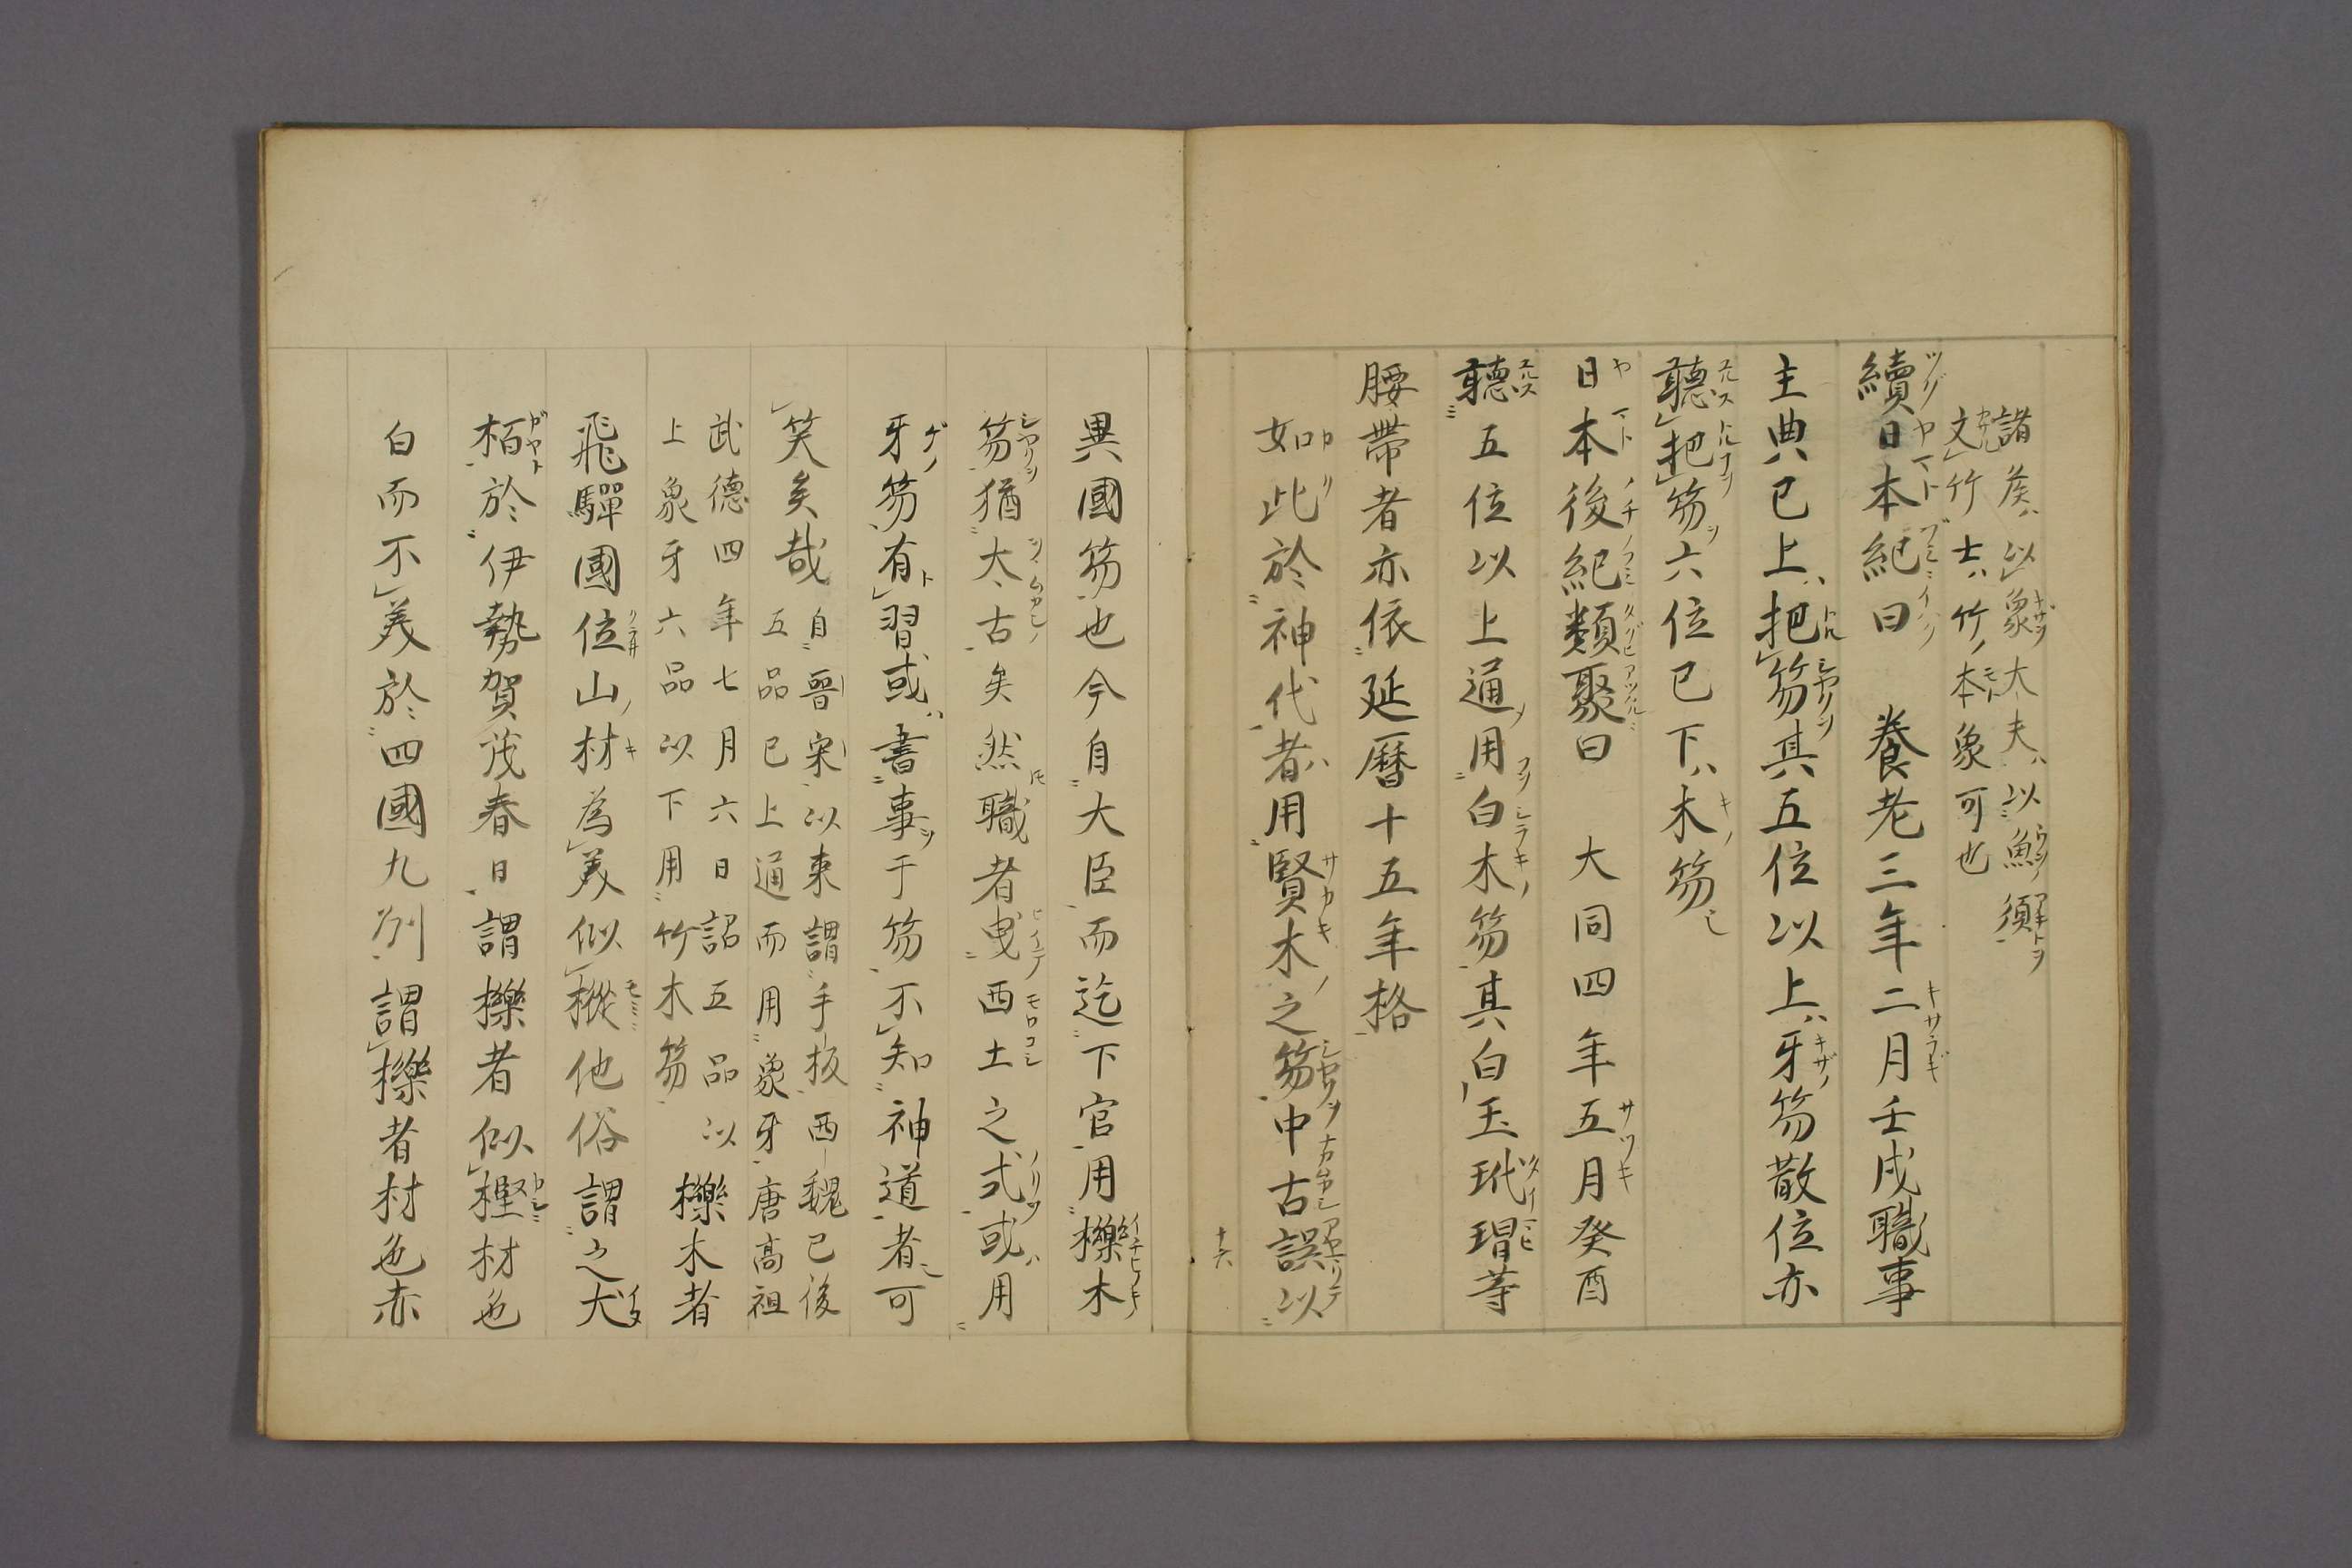 諸侯以象大夫以魚須
文竹士竹本象可也
續日本紀曰　養老三年二月壬戌職事
主典已上把笏其五位以上牙笏散位亦
聽把笏六位已下木笏
日本後紀類聚曰　大同四年五月癸酉
聽五位以上通用白木笏其白玉玳瑁等
腰帶者亦依延曆十五年格
如此於神代者用賢木之笏中古誤以
十六
異國笏也今自大臣而迄下官用櫟木
笏猶太古矣然職者曳西土之式或用
牙笏有習或書事于笏不知神道者可
笑矣哉
自晉宋以來謂手板西魏已後
五品已上通而用象牙唐高祖
武德四年七月六日詔五品以
上象牙六品以下用竹木笏
櫟木者
飛驒國位山材為美似樅他俗謂之大
栢於伊勢賀茂春日謂櫟者似樫材色
白而不美於四國九州謂櫟者材色赤